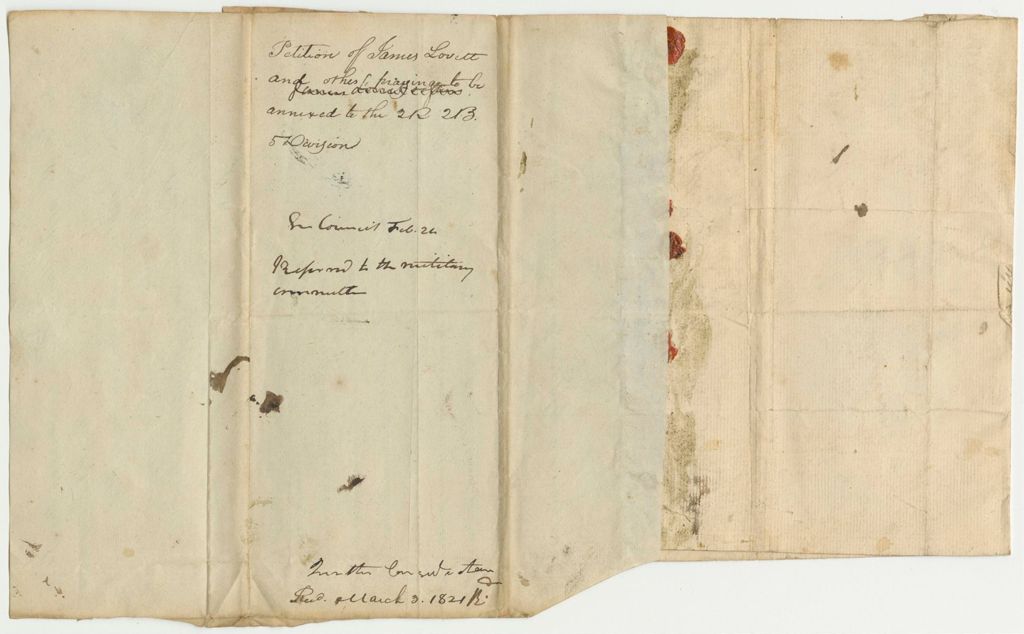 Petition of James Lovett
and others praying to be
annexed to the 2R 2B.
5 Division
In Council Feb. 26
Referred to the military
committee
further Consideration
Recd. March 3. 1821